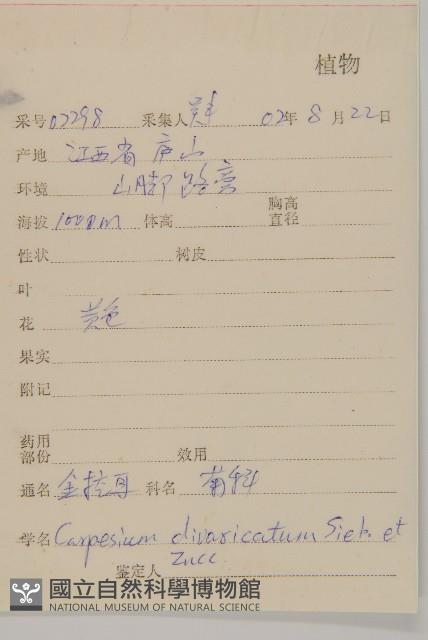 植物
采号 02298 采集人 02年 8月22日
产地 江西省 庐山
环境 山脚路旁
海拔 1000m 体高 胸高直径
性状 树皮
叶
花 黄色
果实
附记
药用部份 效用
通名 金挖耳 科名 菊科
学名 Carpesium divaricatum Sieb. et
Zucc
鉴定人
國立自然科學博物館
NATIONAL MUSEUM OF NATURAL SCIENCE